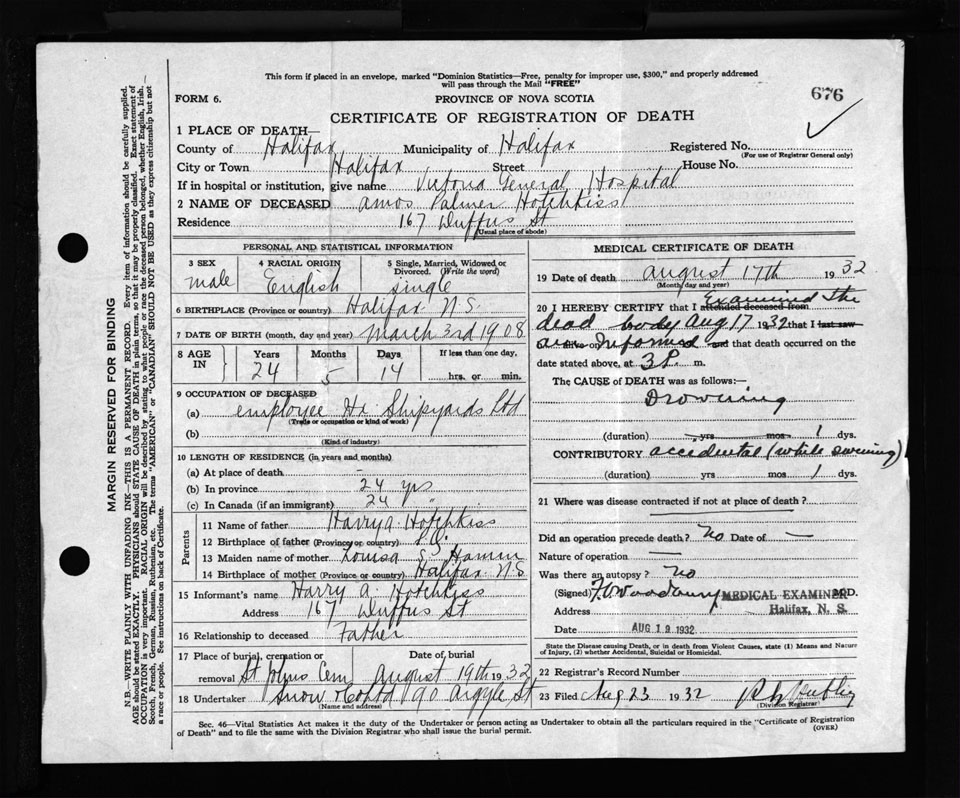 This form if placed in an envelope, marked "Dominion Statistics—Free, penalty for improper use, $300," and properly addressed
will pass through the Mail "FREE"
676
FORM 6.
PROVINCE OF NOVA SCOTIA
CERTIFICATE OF REGISTRATION OF DEATH
1 PLACE OF DEATH—
County of Halifax Municipality of Halifax Registered No.
(For use of Registrar General only)
City or Town Halifax Street House No.
If in hospital or institution, give name Victoria General Hospital
2 NAME OF DECEASED Amos Palmer Hotchkiss
Residence 167 Duffus St
(Usual place of abode)
PERSONAL AND STATISTICAL INFORMATION
3 SEX male
4 RACIAL ORIGIN English
5 Single, Married, Widowed or Divorced. (Write the word) single
6 BIRTHPLACE (Province or country) Halifax N.S.
7 DATE OF BIRTH (month, day and year) March 3rd 1908
8 AGE IN Years Months Days If less than one day,
24 5 14 hrs. or min.
9 OCCUPATION OF DECEASED
(a) employee Hx Shipyards Ltd
(Trade or occupation or kind of work)
(b)
(Kind of industry)
10 LENGTH OF RESIDENCE (in years and months)
(a) At place of death –
(b) In province 24 yrs
(c) In Canada (if an immigrant) 24 "
Parents
11 Name of father Harry A. Hotchkiss
12 Birthplace of father (Province or country)
13 Maiden name of mother Louisa S. Hamm
14 Birthplace of mother (Province or country) Halifax N.S
15 Informant's name Harry A Hotchkiss
Address 167 Duffus St
16 Relationship to deceased Father
17 Place of burial, cremation or removal St Johns Cem
Date of burial August 19th 1932
18 Undertaker Snow & Co Ltd 90 Argyle St
(Name and address)
MEDICAL CERTIFICATE OF DEATH
19 Date of death August 17th 1932
(Month, day and year)
20 I HEREBY CERTIFY that I attended deceased from Examined the
dead body Aug 17 1932 that I last saw
Informed and that death occurred on the
date stated above, at 3 P. m.
The CAUSE of DEATH was as follows:—
Drowning
(duration) yrs mos. 1 dys.
CONTRIBUTORY accidental (while swiming)
(duration) yrs mos. 1 dys.
21 Where was disease contracted if not at place of death?
Did an operation precede death? No Date of —
Nature of operation —
Was there an autopsy? No
(Signed) F.V. Woodbury MEDICAL EXAMINER M.D.
Address Halifax, N. S.
Date AUG 19 1932
State the Disease causing Death, or in death from Violent Causes, state (1) Means and Nature of Injury, (2) whether Accidental, Suicidal or Homicidal.
22 Registrar's Record Number
23 Filed Aug 23 1932
(Division Registrar)
Sec. 46—Vital Statistics Act makes it the duty of the Undertaker or person acting as Undertaker to obtain all the particulars required in the "Certificate of Registration
of Death" and to file the same with the Division Registrar who shall issue the burial permit.
(OVER)
MARGIN RESERVED FOR BINDING
N.B.—WRITE PLAINLY WITH UNFADING INK—THIS IS A PERMANENT RECORD. Every item of information should be carefully supplied.
AGE should be stated EXACTLY. PHYSICIANS should STATE CAUSE OF DEATH in plain terms, so that it may be properly classified. Exact statement of
OCCUPATION is very important. RACIAL ORIGIN will be described by stating to what people or race the deceased person belonged, whether English, Irish,
Scotch, French, German, Russian, Ruthenian, etc. The terms "AMERICAN" or "CANADIAN" SHOULD NOT BE USED as they express citizenship but not
a race or people. See instructions on back of Certificate.